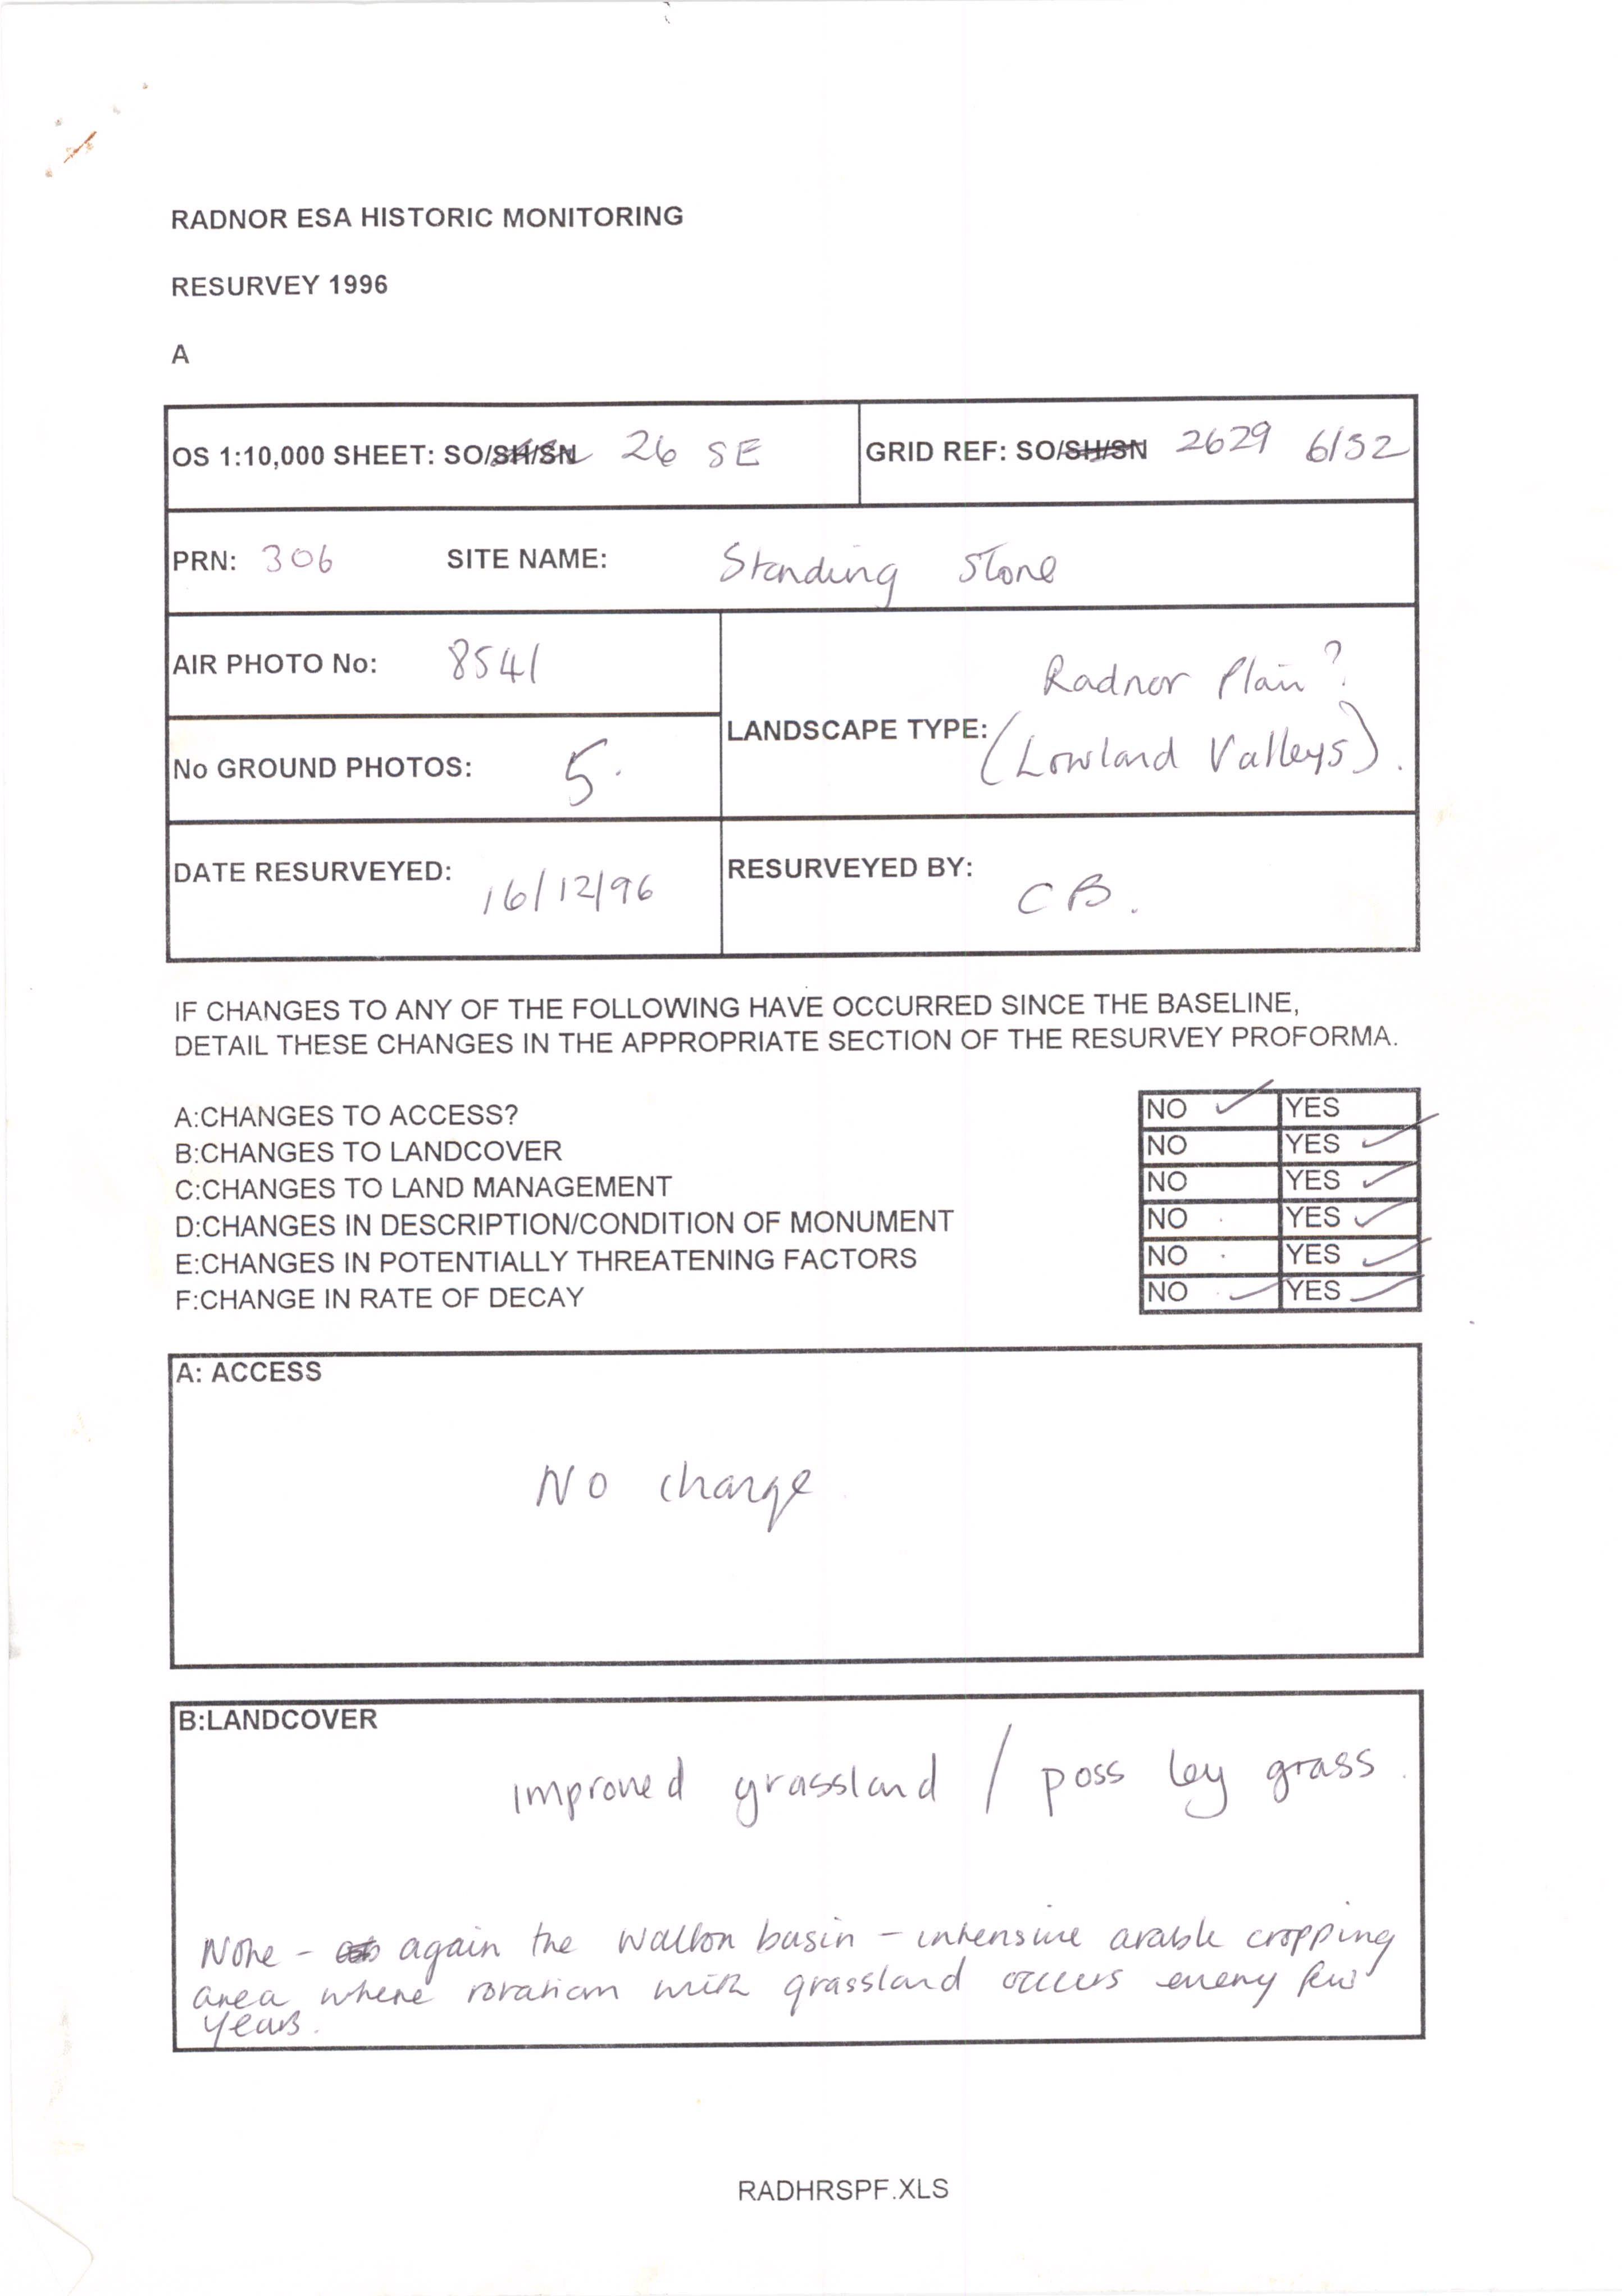 RADNOR ESA HISTORIC MONITORING
RESURVEY 1996
A
OS 1:10,000 SHEET: SO/SH/SN 26 SE GRID REF: SO/SH/SN 2629 6152
PRN: 306 SITE NAME: Standing Stone
AIR PHOTO No: 8541
LANDSCAPE TYPE: Radnor Plain?
(Lowland Valleys).
No GROUND PHOTOS: 5.
DATE RESURVEYED: 16/12/96 RESURVEYED BY: CB.
IF CHANGES TO ANY OF THE FOLLOWING HAVE OCCURRED SINCE THE BASELINE,
DETAIL THESE CHANGES IN THE APPROPRIATE SECTION OF THE RESURVEY PROFORMA.
A:CHANGES TO ACCESS? NO ✓ YES
B:CHANGES TO LANDCOVER NO YES ✓
C:CHANGES TO LAND MANAGEMENT NO YES ✓
D:CHANGES IN DESCRIPTION/CONDITION OF MONUMENT NO YES ✓
E:CHANGES IN POTENTIALLY THREATENING FACTORS NO YES ✓
F:CHANGE IN RATE OF DECAY NO ✓ YES ✓
A: ACCESS
No change
B:LANDCOVER
improved grassland / poss ley grass.
None - again the Walton basin - intensive arable cropping
area where rotation with grassland occurs every few
years.
RADHRSPF.XLS